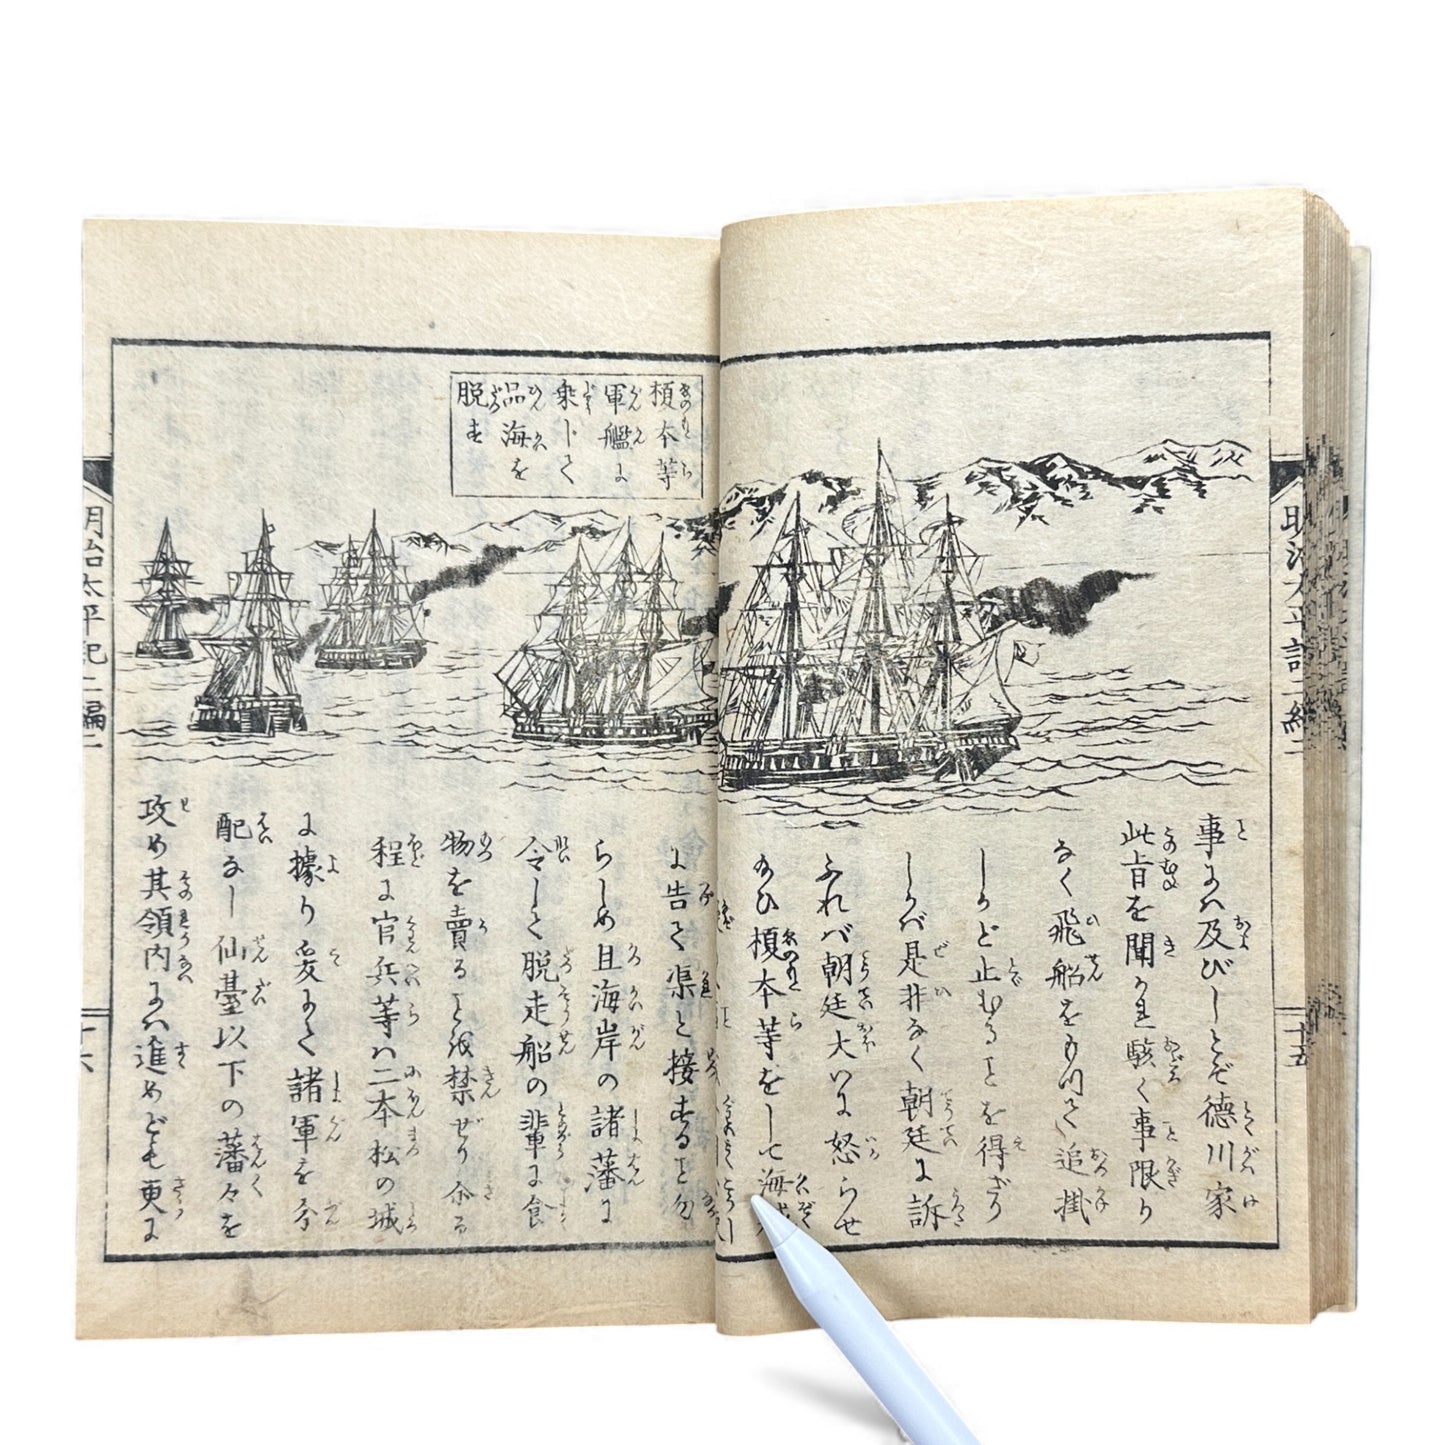 明治太平記二編二
十五
事ハ及びしとぞ徳川家
此旨を聞かれ駭く事限り
なく飛船をもつて追掛
しかど止むることを得ざり
しかバ是非なく朝廷に訴
ふれバ朝廷大いに怒らせ
榎本等をして海
に告て渠と接することを勿
らしめ且海岸の諸藩に
令して脱走船の輩に食
物を賣ることを禁ぜり余る
程に官兵等ハ二本松の城
に據り爰にて諸軍を分
配なし仙臺以下の藩々を
攻め其領内にハ進めども更に
榎本等
軍艦に
乗じて
品海を
脱す
明治太平記二編二
十六